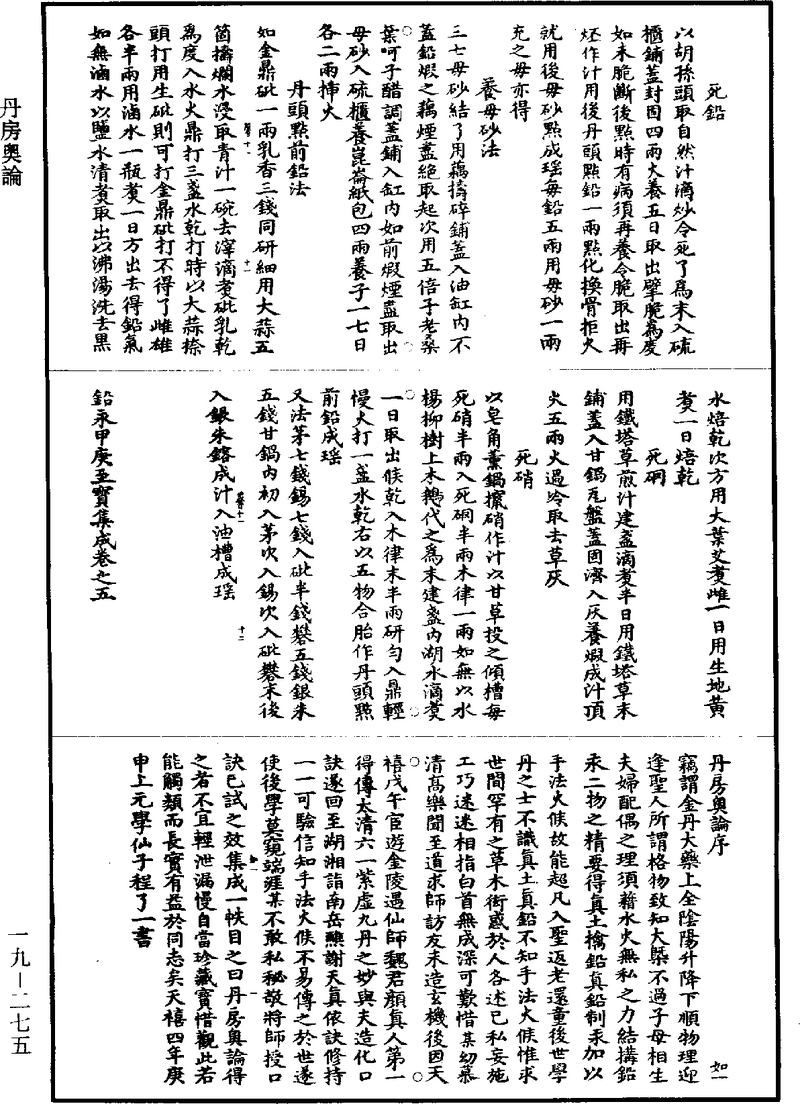 死鉛
以胡孫頭取自然汁滴炒令死了爲末入硫
櫃鋪蓋封固四兩火養五日取出擘脆爲度
如未脆斷後點時有病須再養令脆取出再
烴作汁用後丹頭點鉛一兩點化換骨拒火
就用後母砂點成瑶每鉛五兩用母砂一兩
充之母亦得
養母砂法
三七母砂結了用藕擣碎鋪蓋入油缸內不
蓋鉛煆之藕煙盡絕取起次用五倍子老桑
葉呵子醋調蓋鋪入缸內如前煆煙盡取出
母砂入硫櫃養崑崙紙包四兩養子一七日
各二兩掃火
丹頭點前鉛法
如金鼎砒一兩乳香三錢同研細用大蒜五
箇擣爛水浸取青汁一碗去滓滴煑砒乳乾
爲度入水火鼎打三盞水乾打時以大蒜搽
頭打用生砒則可打金鼎砒打不得了雌雄
各半兩用滷水一瓶煑一日方出去得鉛氣
如無滷水以鹽水清煑取出以沸湯洗去黑
水焙乾次方用大葉艾煑雌一日用生地黃
煑一日焙乾
死硇
用鐵塔草煎汁建盞滴煑半日用鐵塔草末
鋪蓋入甘鍋瓦盤蓋固濟入灰養煆成汁頂
火五兩火過冷取去草灰
死硝
以皂角薰鍋攞硝作汁以甘草投之傾槽每
死硝半兩入死硇半兩木律一兩如無以水
楊柳樹上木鵝代之爲末建盞內湖水滴煑
一日取出候乾入木律末半兩研勻入鼎輕
慢火打一盞水乾右以五物合胎作丹頭點
前鉛成瑶
又法茅七錢錫七錢入砒半錢礬五錢銀朱
五錢甘鍋內初入茅次入錫次入砒礬末後
入銀朱鎔成汁入油槽成瑶
鉛汞甲庚至寶集成卷之五
丹房奧論序
如一
竊謂金丹大藥上全陰陽升降下順物理迎
逢聖人所謂格物致知大槩不過子母相生
夫婦配偶之理須藉水火無私之力結搆鉛
汞二物之精要得真土擒鉛真鉛制汞加以
手法火候故能超凡入聖返老還童後世學
丹之士不識真土真鉛不知手法火候惟求
世間罕有之草木衒惑於人各述已私妄施
工巧迷迷相指白首無成深可歎惜某幼慕
清高樂聞至道求師訪友未造玄機後因天
禧戊午宦遊金陵遇仙師魏君顏真人第一
得傳太清六一紫虛九丹之妙與夫造化口
訣遂回至湖湘詣南岳醮謝天真依訣修持
一一可驗信知手法火候不易傳之於世遂
使後學莫窺端涯某不敢私秘敬將師授口
訣已試之效集成一帙目之曰丹房奧論得
之者不宜輕泄漏慢自當珍藏寶惜觀此若
能觸類而長實有益於同志矣天禧四年庚
申上元學仙子程了一書
丹房奧論
一九—二七五